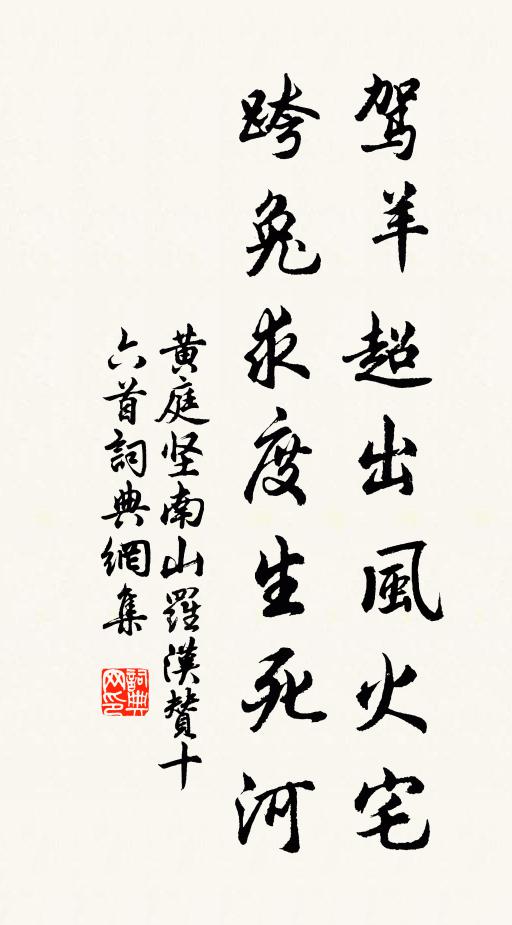 驾羊超出風火宅
跨兔求度生死河
黄庭坚南山羅漢贊十
六首詞典網集
詞典网印